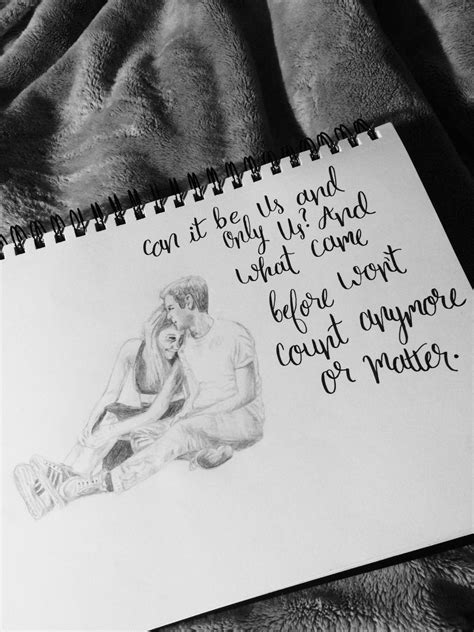 can it be us and
only us? And
what came
before won't
count anymore
or matter.